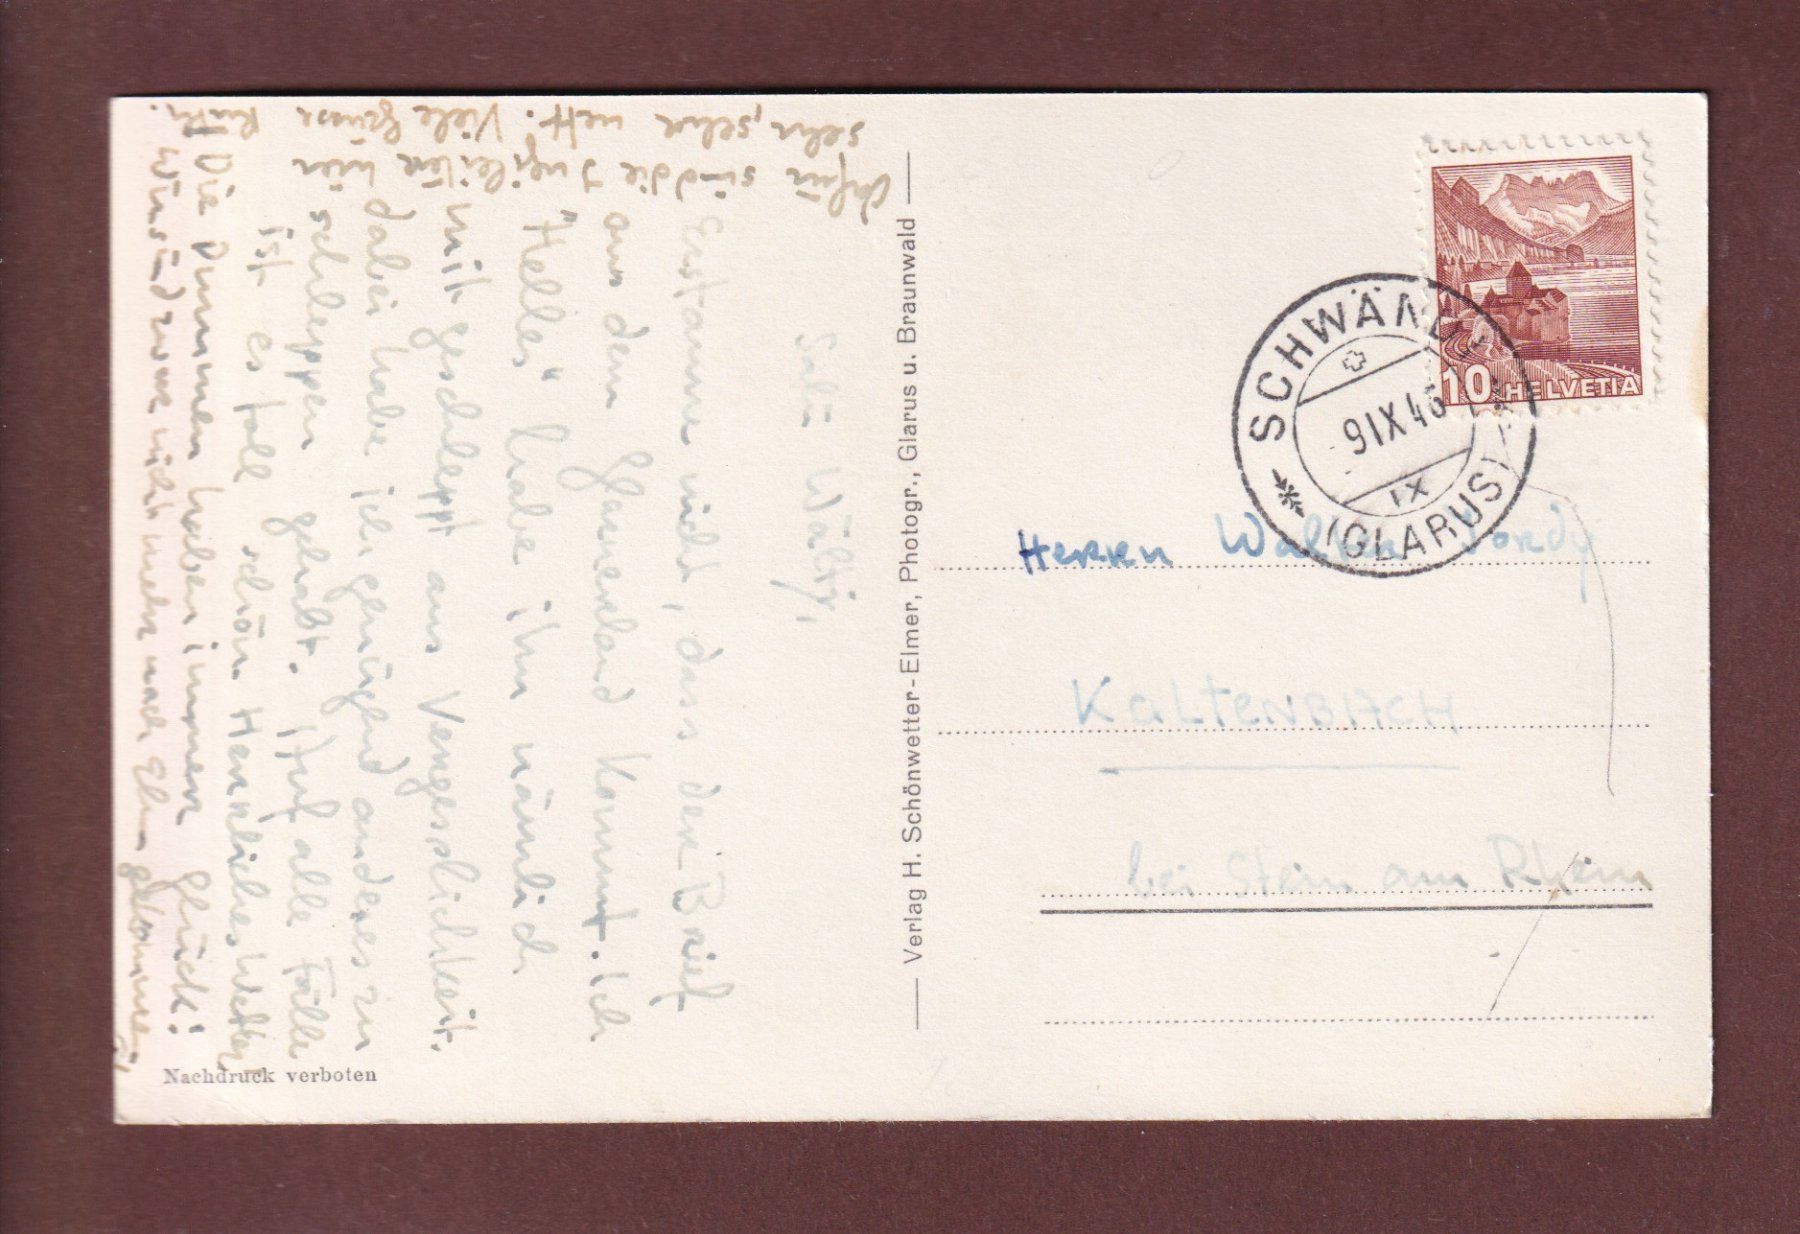 Salü Wälti,
Erstaune nicht, dass der Brief
aus dem Glarnerland kommt. Ich
"Helles" habe ihn nämlich
mit geschleppt aus Vergesslichkeit.
Dabei habe ich genügend anderes zu
schleppen gehabt. Auf alle Fälle
ist es toll schön. Herrliches Wetter,
Die Dummen haben immer Glück!
Wir sind zwar nicht mehr nach Elm gekommen,
dafür sind die Jugileiter hier
sehr, sehr nett! Viele Grüsse
Nachdruck verboten
Verlag H. Schönwetter-Elmer, Photogr., Glarus u. Braunwald
10 HELVETIA
SCHWÄND
9 IX 46
IX
(GLARUS)
Herrn Walter
KALTENBACH
bei Stein am Rhein